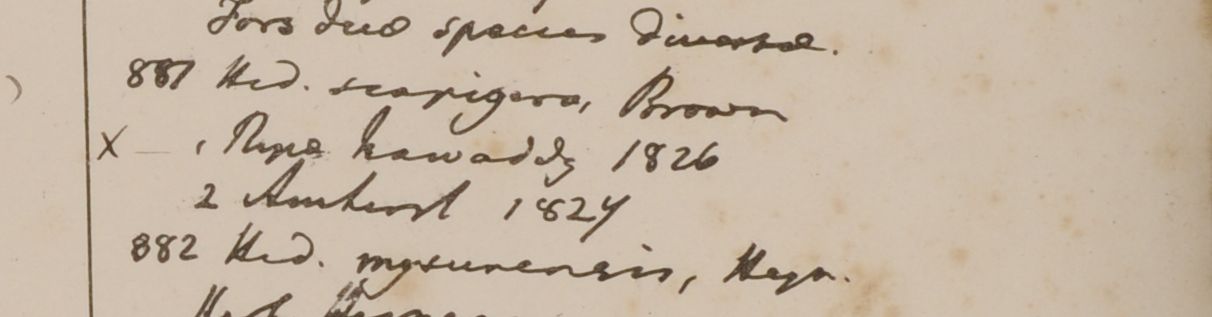 Fors duæ species diversæ.
881 Hed. scapigera, Brown
X — 1 Ripæ Irawaddy 1826
2 Amherst 1827
882 Hed. mysurensis, Heyn.
Herb